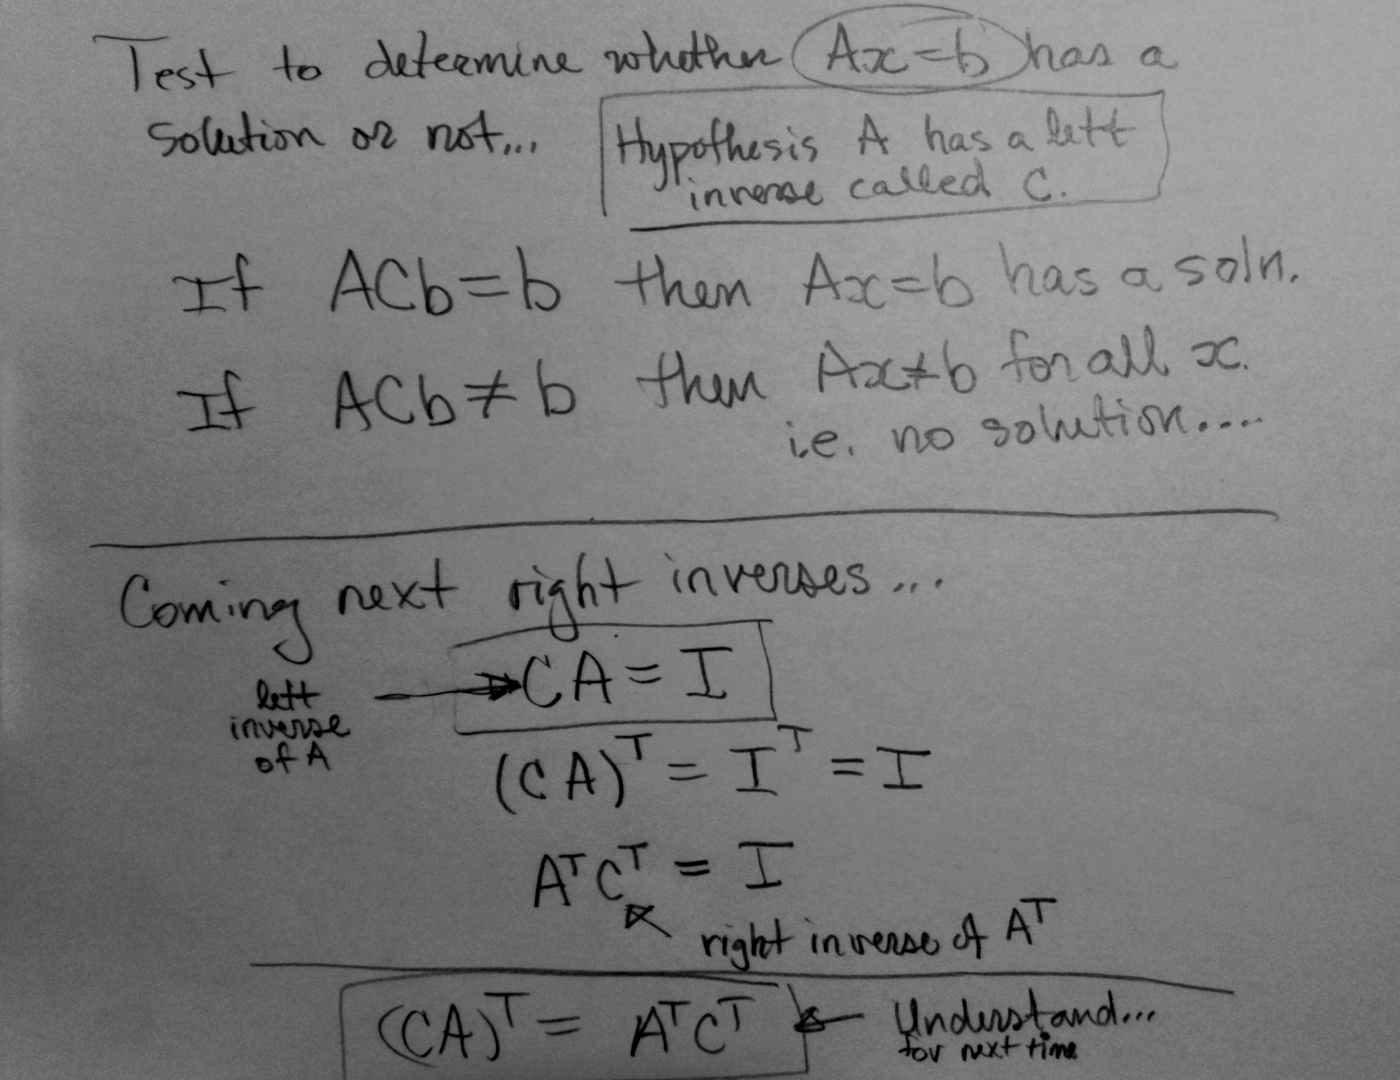 Test to determine whether Ax=b has a
solution or not...
Hypothesis A has a left
inverse called C.
If ACb=b then Ax=b has a soln.
If ACb≠b then Ax≠b for all x.
i.e. no solution....
Coming next right inverses...
left
inverse
of A
CA = I
(CA)ᵀ = Iᵀ = I
AᵀCᵀ = I
right inverse of Aᵀ
(CA)ᵀ = AᵀCᵀ
Understand...
for next time